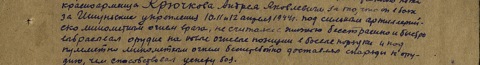 красноармейца Крючкова Андрея Яковлевича за то, что он в боях
за Ишунские укрепления 10. 11 и 12 апреля 1944 г. под сильным артиллерий-
ско минометным огнем врага, не считаясь с бесстрашно и быстро
орудие на новые огневые позиции в боевые порядки и под
пулеметно минометным огнем бесперебойно доставлял снаряды к ору-
дию, чем способствовал успеху боя.